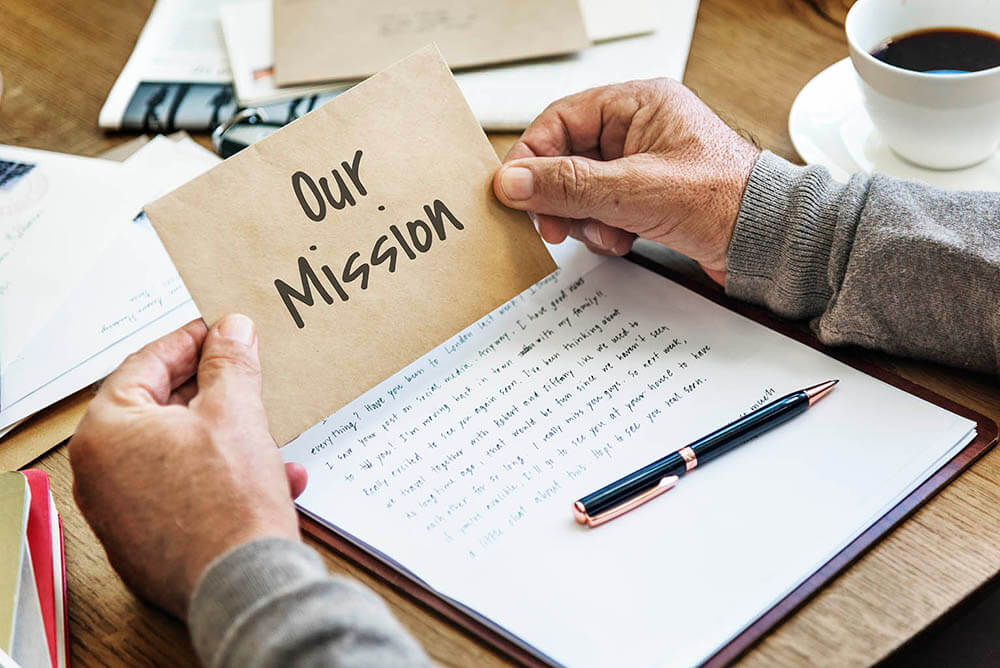 Our
Mission
everything? Have you been to London last week? I thought
I saw your post on social media. Anyway, I have good news
to tell you! I'm moving back in town with my family!!
Really excited to see you again soon. I've been thinking about
we travel together with Robert and Tiffany like we used to
do longtime ago, that would be fun since we haven't seen
each other for so long. I really miss you guys. So next week,
if you're avalible. I'll go to see you at your house to
a little chat about this. Hope to see you real soon.
much